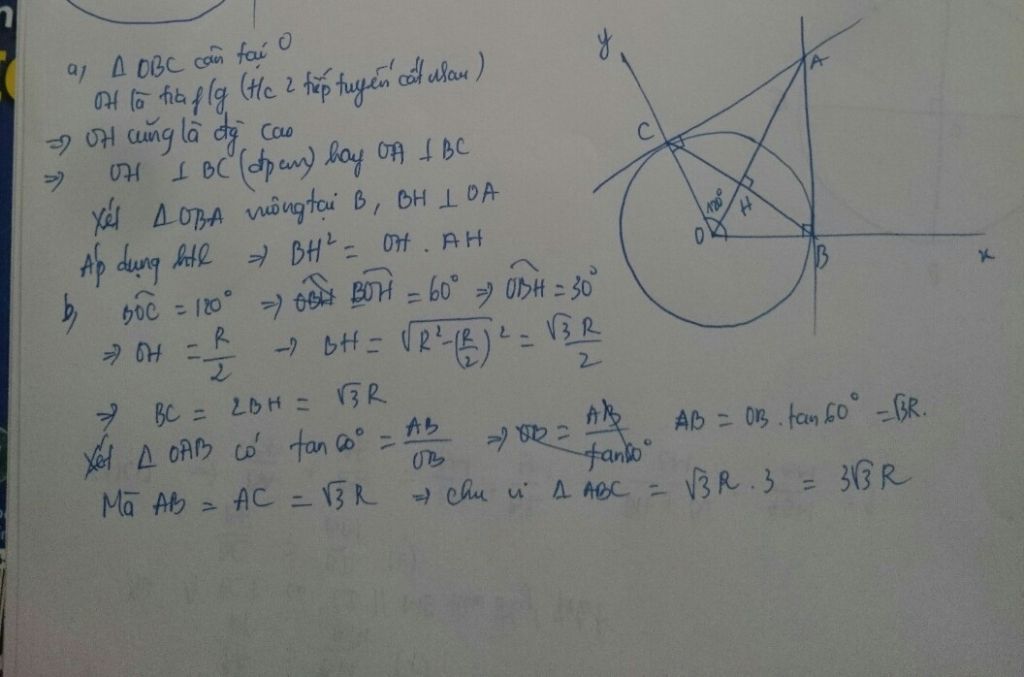 a, Δ OBC cân tại O
OH là tia f/g (t/c 2 tiếp tuyến cắt nhau)
=> OH cũng là đg cao
=> OH ⊥ BC (đpcm) hay OA ⊥ BC
Xét Δ OBA vuông tại B, BH ⊥ OA
Áp dụng htl => BH² = OH . AH
b, BOC = 120° => OBH BOH = 60° => OBH = 30°
=> OH = R/2 -> BH = √R²-(R/2)² = √3 R/2
=> BC = 2BH = √3 R
Xét Δ OAB có tan 60° = AB/OB => OB = AB/tan60° AB = OB . tan 60° = √3R.
Mà AB = AC = √3 R => chu vi Δ ABC = √3 R . 3 = 3√3 R
y
A
C
120°
H
O
B
x